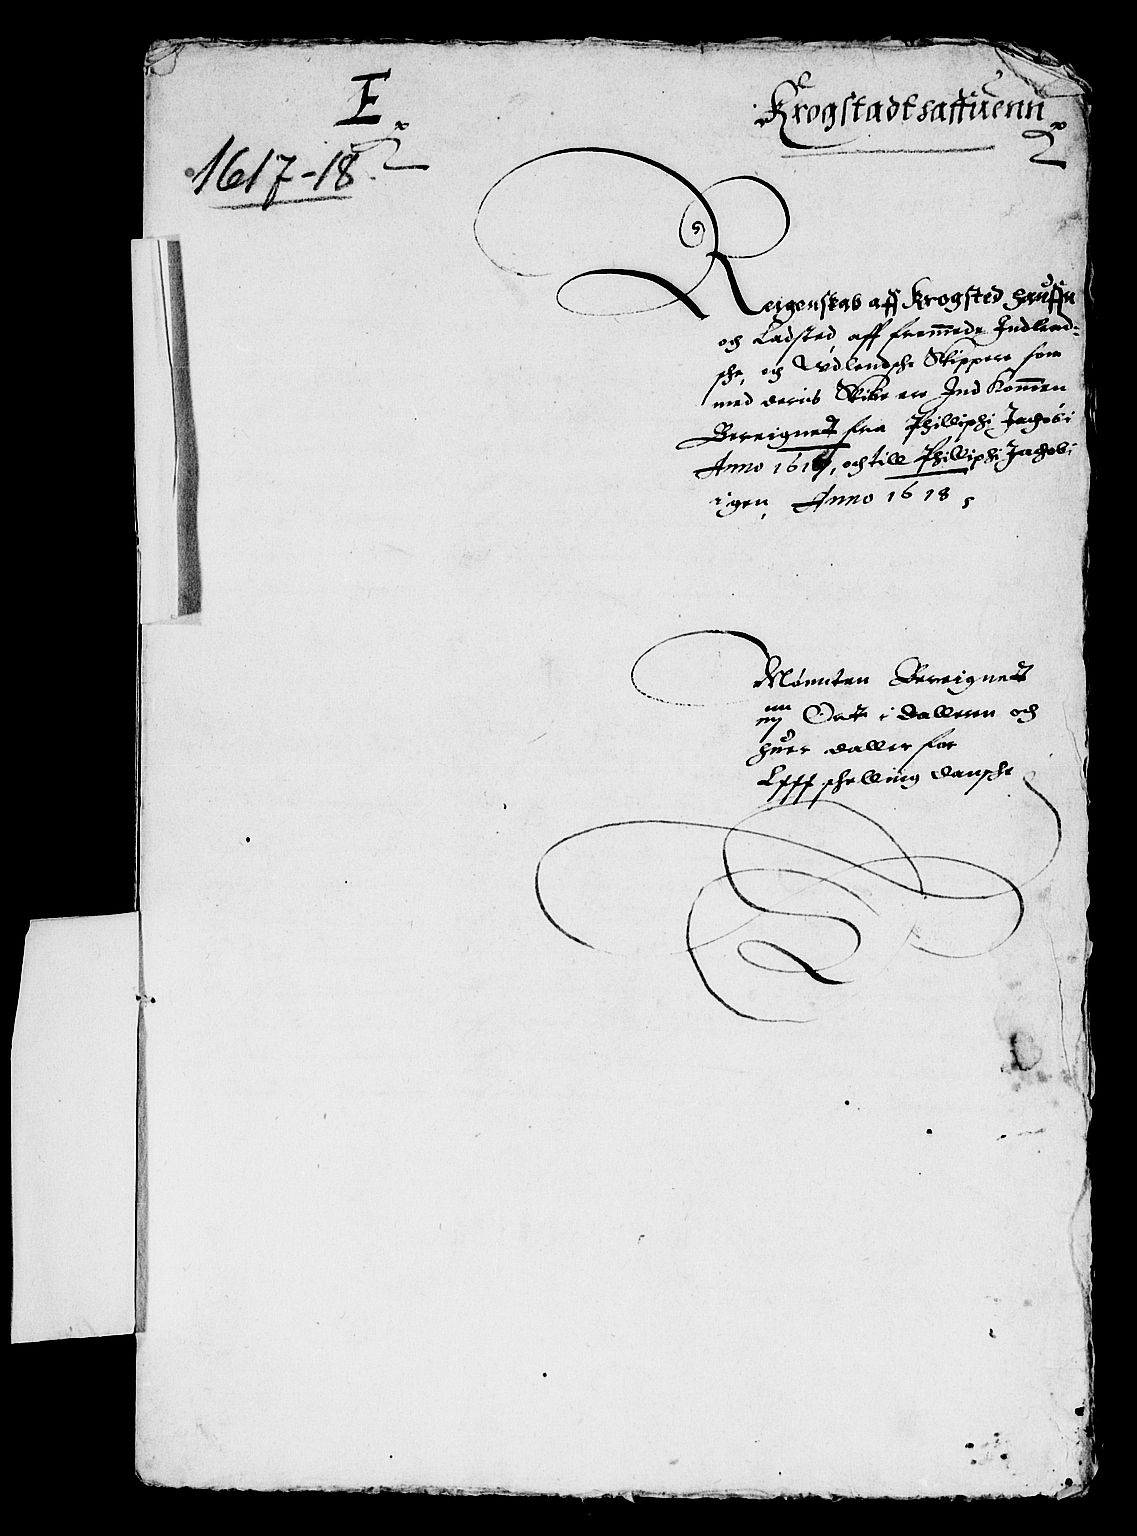 E
1617-18.
Krogstadtsaffuenn
Regenskab aff Krogsted Hauffn
och Ladsted aff fremmede Indlend-
sche, och Wdlendsche Skippere som
med deris Skibe ere Ind Kommen
Bereignet fra Philliphi Jachobi
Anno 1617, och till Phillipphi Jachobi
igen, Anno 1618,
Mønnten Bereignet
iiij Ort i dalleren och
huer daller for
schelling dansche